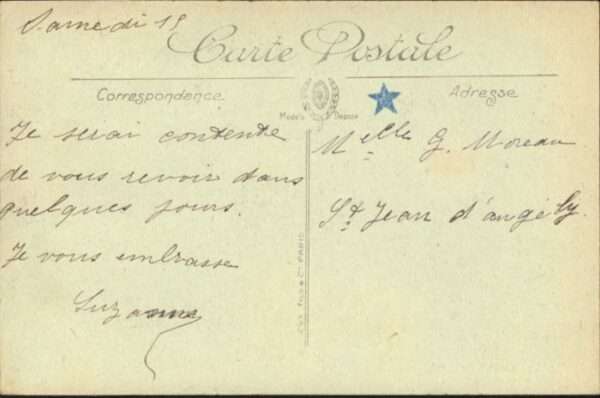 Samedi 15
Carte Postale
Correspondance
Adresse
Modèle Déposé
Je serai contente
de vous revoir dans
quelques jours.
Je vous embrasse
Suzanne
Melle G. Moreau
St Jean d'angély.